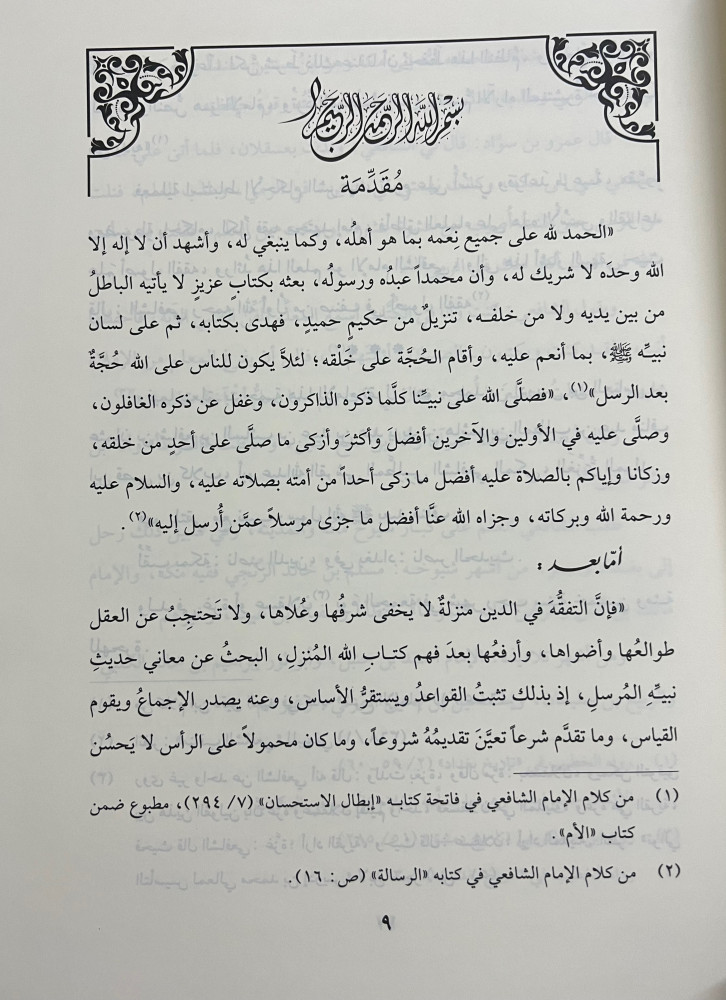 بسم الله الرحمن الرحيم
مُقَدِّمَة
«الحمد لله على جميع نِعَمه بما هو أهلُه، وكما ينبغي له، وأشهد أن لا إله إلا
الله وحدَه لا شريك له، وأن محمداً عبدُه ورسولُه، بعثه بكتابٍ عزيزٍ لا يأتيه الباطلُ
من بين يديه ولا من خلفه، تنزيلٌ من حكيمٍ حميدٍ، فهدى بكتابه، ثم على لسان
نبيِّه ﷺ، بما أنعم عليه، وأقام الحُجَّة على خَلْقه؛ لئلاَّ يكون للناس على الله حُجَّةٌ
بعد الرسل»(١)، «فصلَّى الله على نبيِّنا كلَّما ذكره الذاكرون، وغفل عن ذكره الغافلون،
وصلَّى عليه في الأولين والآخرين أفضلَ وأكثرَ وأزكى ما صلَّى على أحدٍ من خلقه،
وزكانا وإياكم بالصلاة عليه أفضل ما زكى أحداً من أمته بصلاته عليه، والسلام عليه
ورحمة الله وبركاته، وجزاه الله عنَّا أفضل ما جزى مرسلاً عمَّن أُرسل إليه»(٢).
أمّا بعد:
«فإنَّ التفقُّهَ في الدين منزلةٌ لا يخفى شرفُها وعُلاها، ولا تَحتجِبُ عن العقل
طوالعُها وأضواها، وأرفعُها بعدَ فهم كتابِ الله المُنزلِ، البحثُ عن معاني حديثِ
نبيِّهِ المُرسلِ، إذ بذلك تثبتُ القواعدُ ويستقرُّ الأساس، وعنه يصدر الإجماعُ ويقوم
القياس، وما تقدَّم شرعاً تعيَّنَ تقديمُهُ شروعاً، وما كان محمولاً على الرأس لا يَحسُن
(١) من كلام الإمام الشافعي في فاتحة كتابه «إبطال الاستحسان» (٧/ ٢٩٤)، مطبوع ضمن
كتاب «الأم».
(٢) من كلام الإمام الشافعي في كتابه «الرسالة» (ص: ١٦).
٩